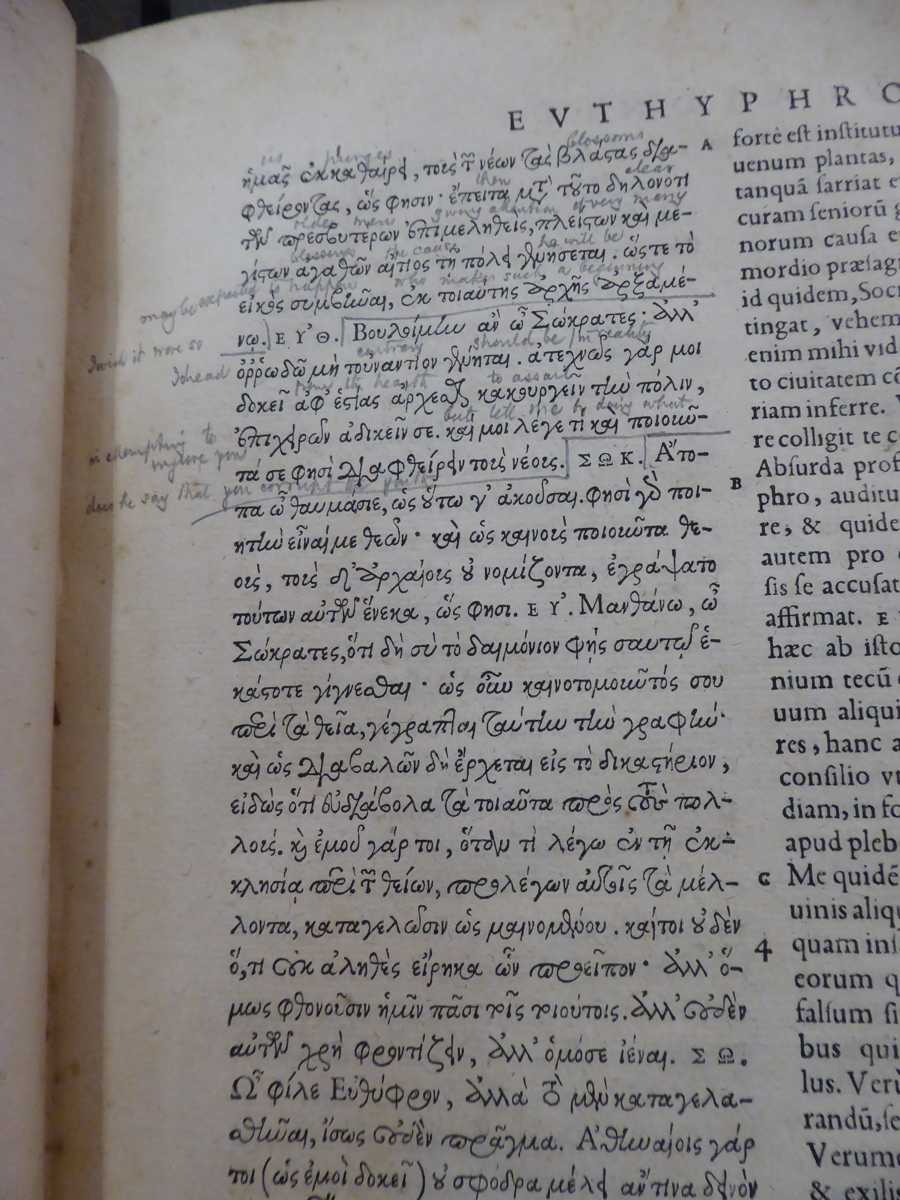 EVTHYPHRO
us purges blossoms
ἡμᾶς ἐκκαθαίρει, τοὺς τῶν νέων τὰς βλάστας δια-
then clear
φθείροντας, ὥς φησιν· ἔπειτα μετὰ τοῦτο δηλονότι
older men giving attention of very many
τῶν πρεσβυτέρων ἐπιμεληθεὶς, πλείστων καὶ με-
blessings the cause he will be
γίστων ἀγαθῶν αἴτιος τῇ πόλει γενήσεται. ὥστε τὸ
may be expected to happen who makes such a beginning
εἰκὸς συμβῆναι, ἐκ τοιαύτης ἀρχῆς ἀρξαμέ-
νῳ. ΕΥΘ. Βουλοίμην ἂν ὦ Σώκρατες· ἀλλ'
I wish it were so
contrary should be in reality
I dread
ὀῤῥωδῶ μὴ τοὐναντίον γένηται. ἀτεχνῶς γάρ μοι
from its hearth to assault
δοκεῖ ἀφ' ἑστίας ἄρχεσθαι κακουργεῖν τὴν πόλιν,
but tell me by doing what
in attempting to
ἐπιχειρῶν ἀδικεῖν σε. καί μοι λέγε τί καὶ ποιοῦν-
you
τά σε φησὶ διαφθείρειν τοὺς νέους. ΣΩΚ. Ἄτο-
does he say that you corrupt the
πα ὦ θαυμάσιε, ὡς οὕτω γ' ἀκοῦσαι. φησὶ γὰρ ποι-
ητὴν εἶναί με θεῶν· καὶ ὡς καινοὺς ποιοῦντα θε-
οὺς, τοὺς δ' ἀρχαίους οὐ νομίζοντα, ἐγράψατο
τούτων αὐτῶν ἕνεκα, ὥς φησι. ΕΥ. Μανθάνω, ὦ
Σώκρατες, ὅτι δὴ σὺ τὸ δαιμόνιον φῂς σαυτῷ ἑ-
κάστοτε γίγνεσθαι· ὡς οὖν καινοτομοῦντός σου
περὶ τὰ θεῖα, γέγραπται ταύτην τὴν γραφήν·
καὶ ὡς διαβαλῶν δὴ ἔρχεται εἰς τὸ δικαστήριον,
εἰδὼς ὅτι εὐδιάβολα τὰ τοιαῦτα πρὸς τοὺς πολ-
λούς. καὶ ἐμοῦ γάρ τοι, ὅταν τὶ λέγω ἐν τῇ ἐκ-
κλησίᾳ περὶ τῶν θείων, προλέγων αὐτοῖς τὰ μέλ-
λοντα, καταγελῶσιν ὡς μαινομένου. καίτοι οὐδὲν
ὅ,τι οὐκ ἀληθὲς εἴρηκα ὧν προεῖπον· ἀλλ' ὅ-
μως φθονοῦσιν ἡμῖν πᾶσι τοῖς τοιούτοις. ἀλλ' οὐδὲν
αὐτῶν χρὴ φροντίζειν, ἀλλ' ὁμόσε ἰέναι. ΣΩ.
Ὦ φίλε Εὐθύφρον, ἀλλὰ τὸ μὲν καταγελα-
σθῆναι, ἴσως οὐδὲν πρᾶγμα. Ἀθηναίοις γάρ
τοι (ὡς ἐμοὶ δοκεῖ) οὐ σφόδρα μέλει ἄν τινα δεινὸν
A
B
C
4
fortè est institutu
uenum plantas,
tanquã sarriat e
curam seniorũ
norum causa e
mordio præsag
id quidem, Socr
tingat, vehem
enim mihi vid
to ciuitatem cõ
riam inferre.
re colligit te c
Absurda prof
phro, auditu
re, & quide
autem pro
sis se accusat
affirmat. E
hæc ab isto
nium tecũ
uum aliqui
res, hanc a
consilio v
diam, in fo
apud pleb
Me quidẽ
uinis aliq
quam ins
eorum q
falsum si
bus qui
lus. Verù
randũ, se
Verume
& exili